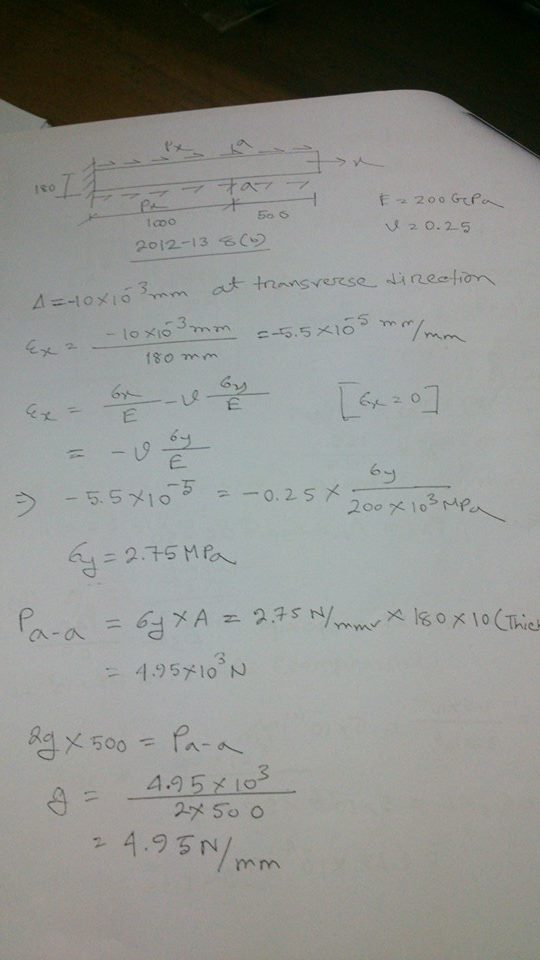 Px a
x
180
a
Px
1000 500
E = 200 GPa
ν = 0.25
2012-13 8(b)
Δ = -10×10⁻³ mm at transverse direction
εx = -10×10⁻³ mm / 180 mm = -5.5×10⁻⁵ mm/mm
εx = σx/E - ν σy/E [σx = 0]
= - ν σy/E
⇒ -5.5×10⁻⁵ = -0.25 × σy / 200×10³ MPa
σy = 2.75 MPa
Pa-a = σy × A = 2.75 N/mm² × 180 × 10 (Thick
= 4.95×10³ N
2q × 500 = Pa-a
q = 4.95×10³ / 2×500
= 4.95 N/mm